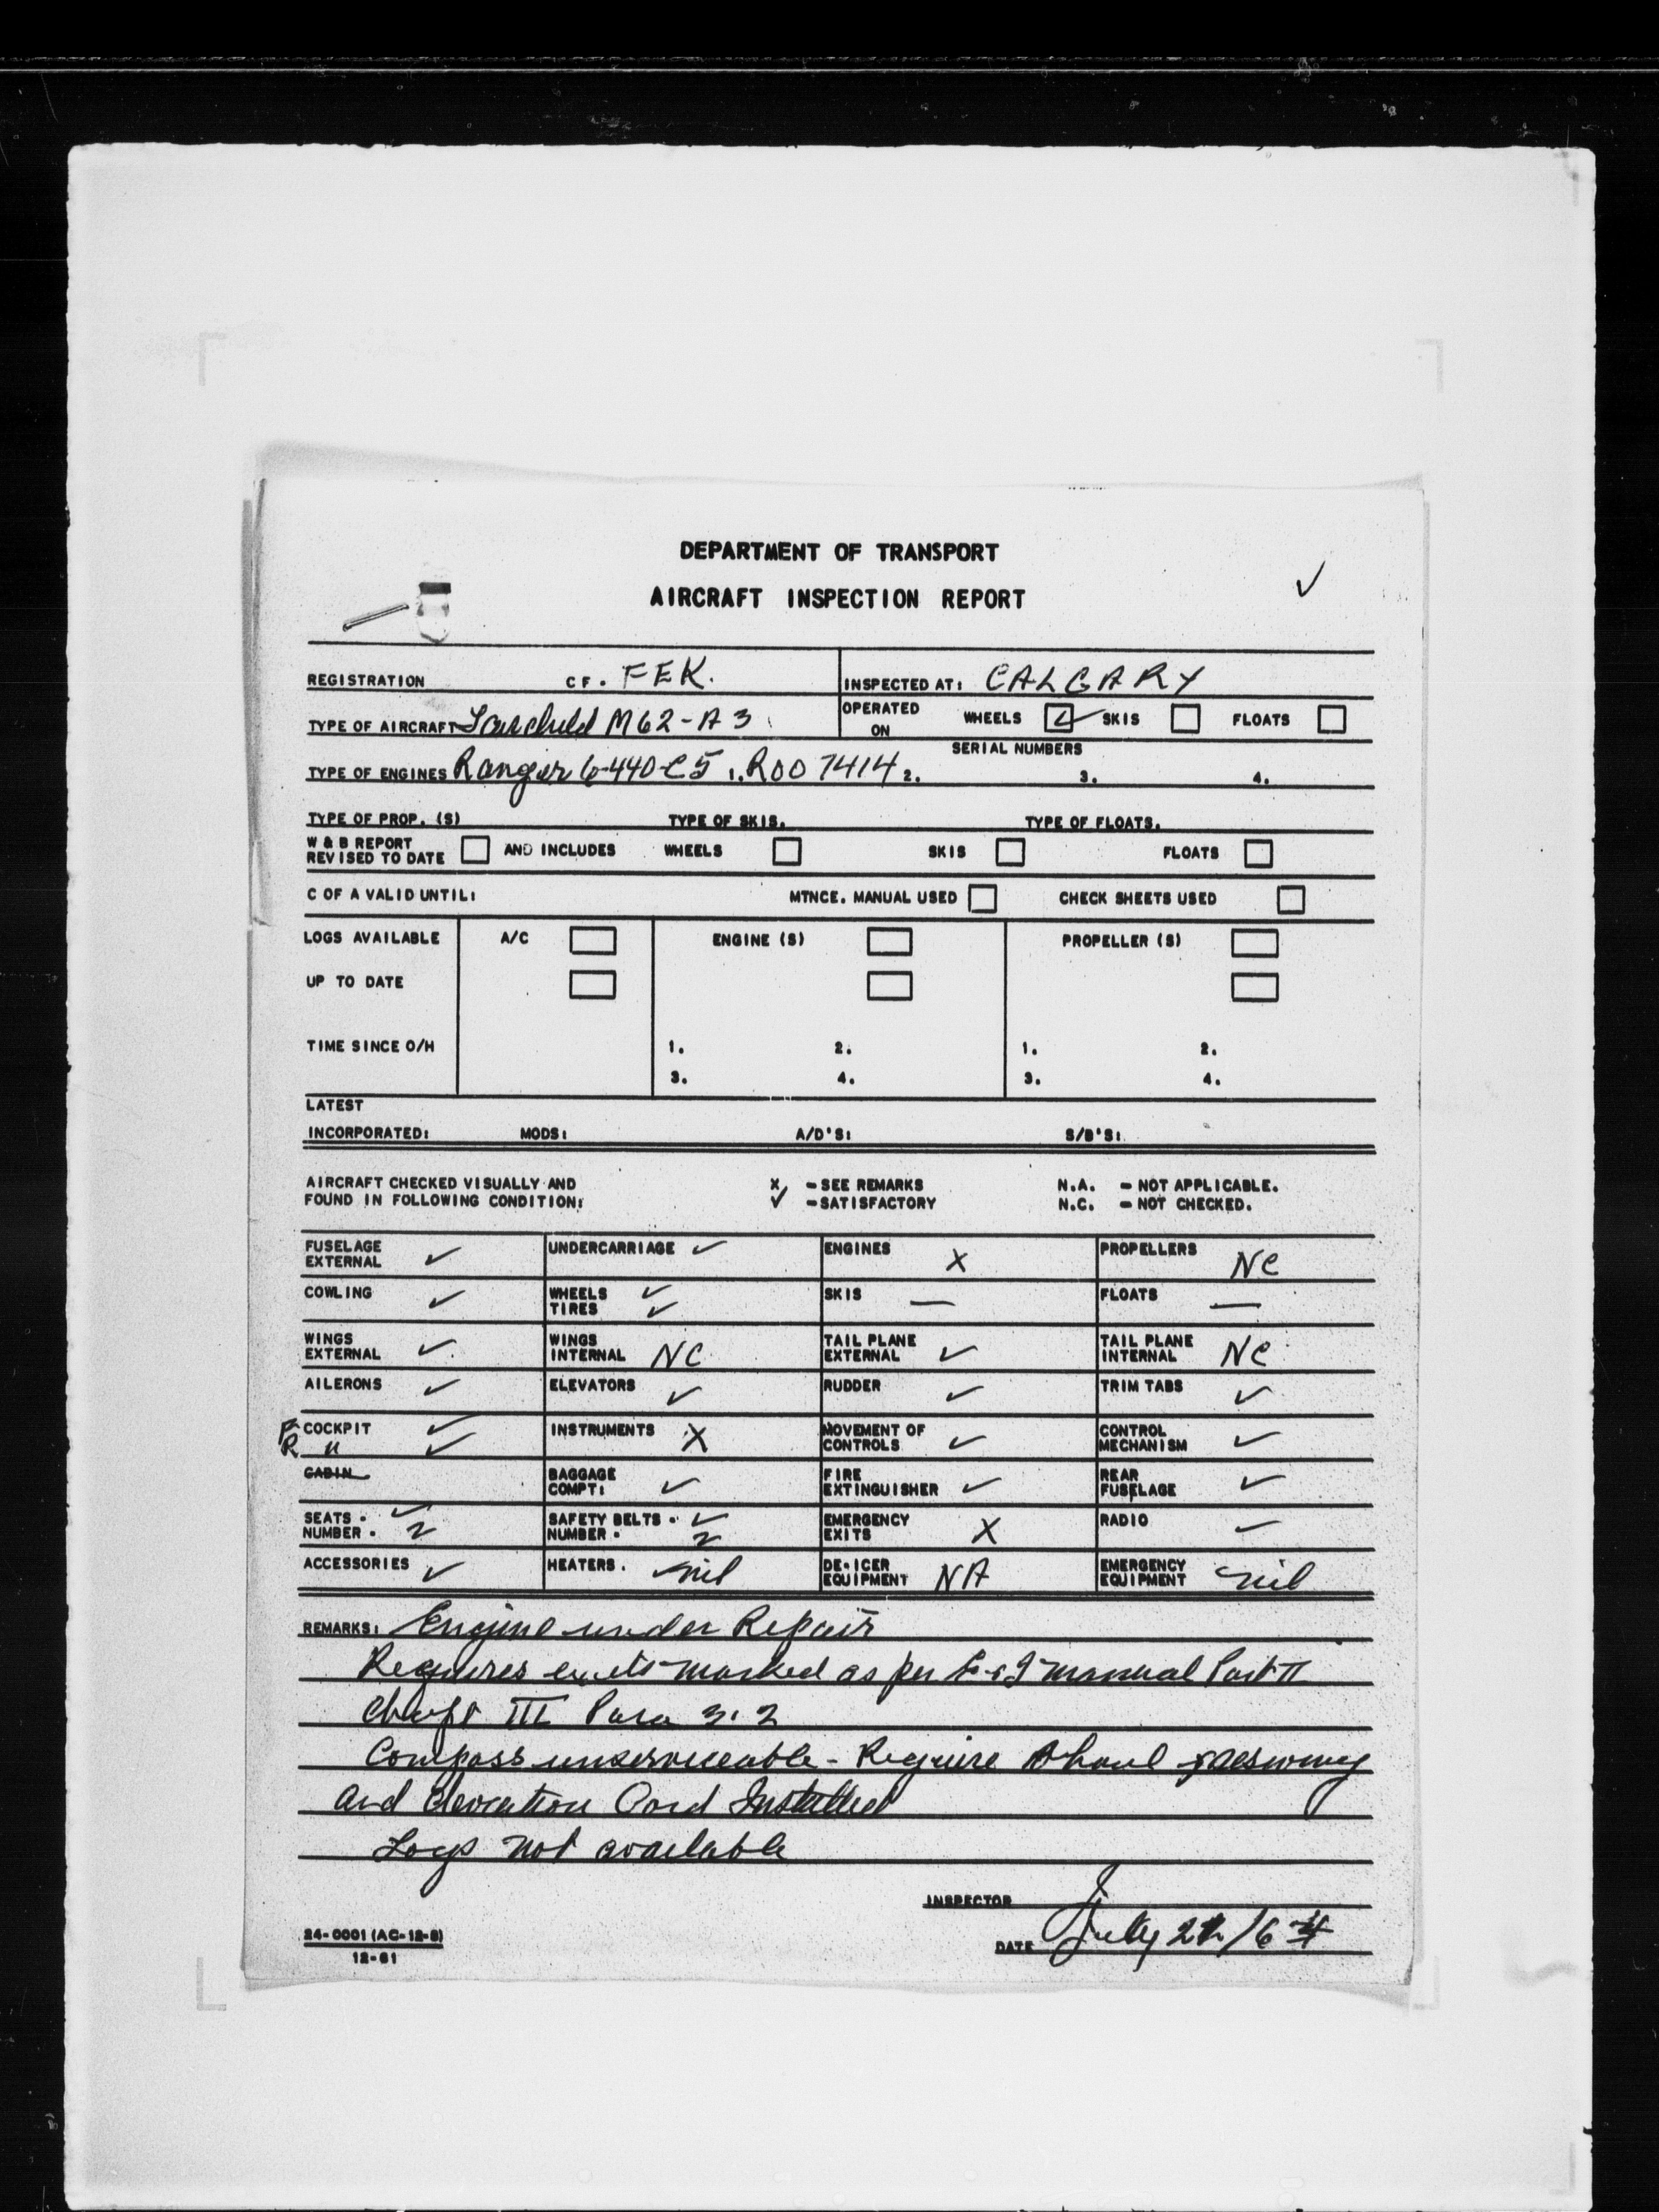 DEPARTMENT OF TRANSPORT
AIRCRAFT INSPECTION REPORT ✓
REGISTRATION CF. FEK. INSPECTED AT: CALGARY
TYPE OF AIRCRAFT Fairchild M62-A3 OPERATED ON WHEELS ☑ SKIS ☐ FLOATS ☐
SERIAL NUMBERS
TYPE OF ENGINES Ranger 6-440-C5 1. R00 7414 2. 3. 4.
TYPE OF PROP. (S) TYPE OF SKIS. TYPE OF FLOATS.
W & B REPORT
REVISED TO DATE ☐ AND INCLUDES WHEELS ☐ SKIS ☐ FLOATS ☐
C OF A VALID UNTIL: MTNCE. MANUAL USED ☐ CHECK SHEETS USED ☐
LOGS AVAILABLE A/C ☐ ENGINE (S) ☐ PROPELLER (S) ☐
UP TO DATE ☐ ☐ ☐
TIME SINCE O/H 1. 2. 1. 2.
3. 4. 3. 4.
LATEST
INCORPORATED: MODS: A/D'S: S/B'S:
AIRCRAFT CHECKED VISUALLY AND X - SEE REMARKS N.A. - NOT APPLICABLE.
FOUND IN FOLLOWING CONDITION: ✓ - SATISFACTORY N.C. - NOT CHECKED.
FUSELAGE EXTERNAL ✓ UNDERCARRIAGE ✓ ENGINES X PROPELLERS NC
COWLING ✓ WHEELS ✓ TIRES ✓ SKIS — FLOATS —
WINGS EXTERNAL ✓ WINGS INTERNAL NC TAIL PLANE EXTERNAL ✓ TAIL PLANE INTERNAL NC
AILERONS ✓ ELEVATORS ✓ RUDDER ✓ TRIM TABS ✓
F COCKPIT ✓ R " ✓ INSTRUMENTS X MOVEMENT OF CONTROLS ✓ CONTROL MECHANISM ✓
CABIN BAGGAGE COMPT: ✓ FIRE EXTINGUISHER ✓ REAR FUSELAGE ✓
SEATS - ✓ NUMBER - 2 SAFETY BELTS - ✓ NUMBER - 2 EMERGENCY EXITS X RADIO ✓
ACCESSORIES ✓ HEATERS. nil DE-ICER EQUIPMENT NA EMERGENCY EQUIPMENT nil
REMARKS: Engine under Repair
Requires exits marked as per manual Part II
Chapt III Para 3.2
Compass unserviceable - Require
and Card Installed
Logs not available
INSPECTOR
DATE July 22/64
24-0001 (AC-12-8)
12-61